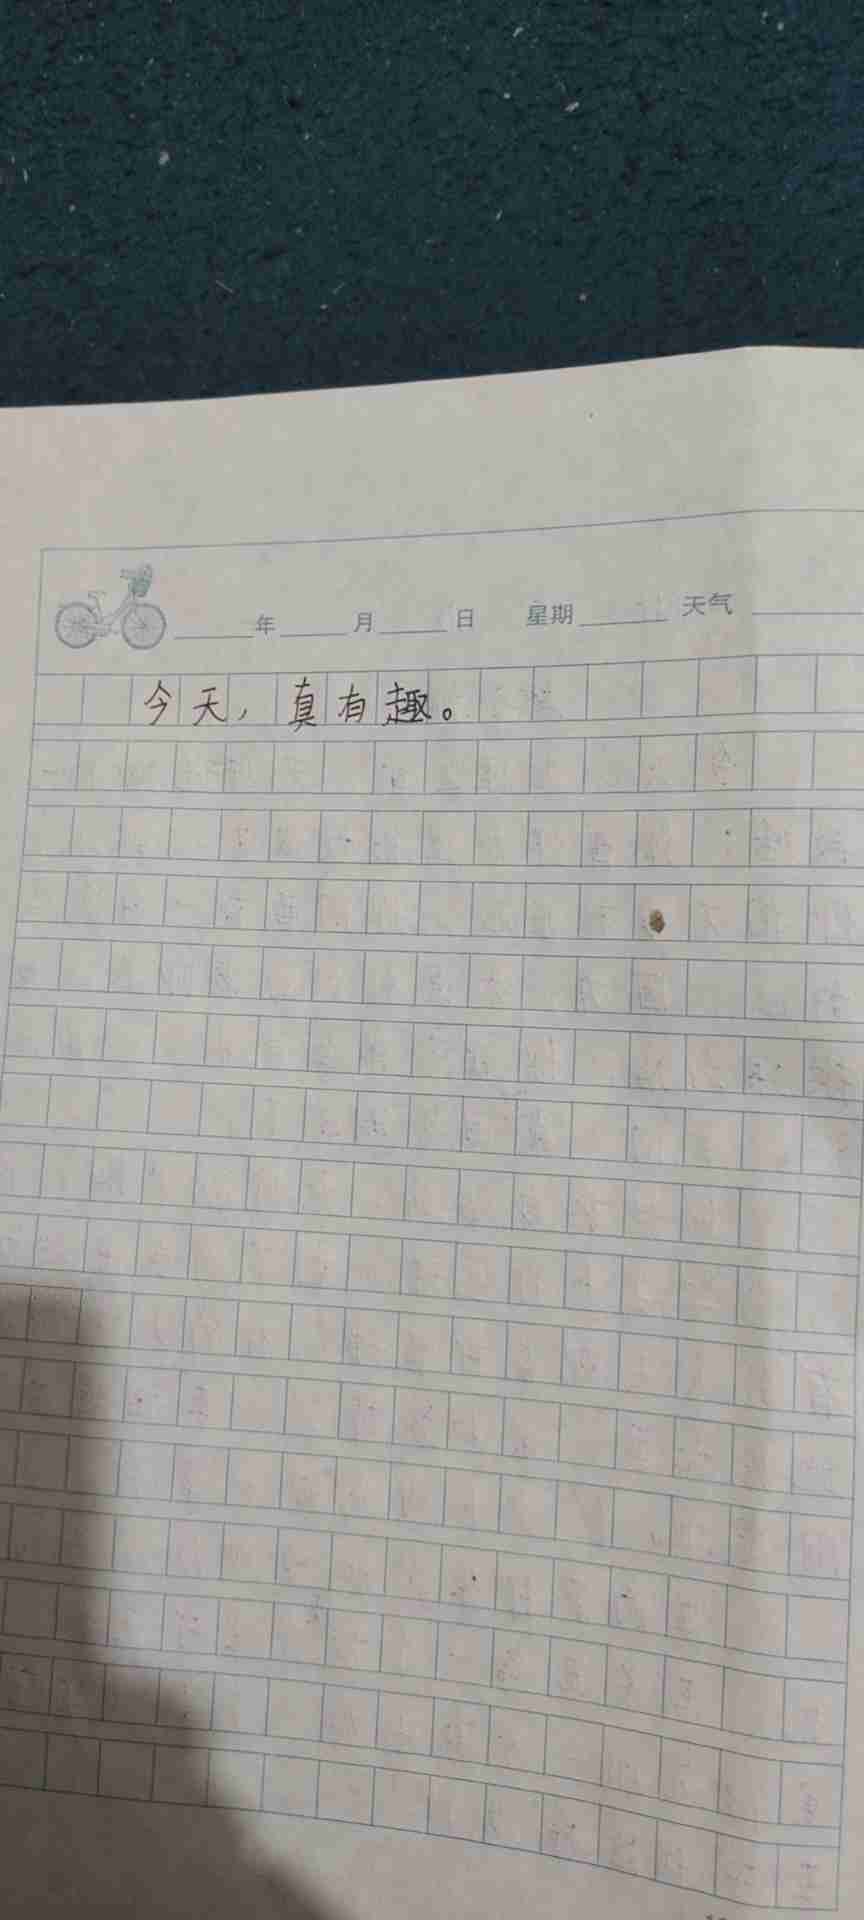 年 月 日 星期 天气
今天，真有趣。